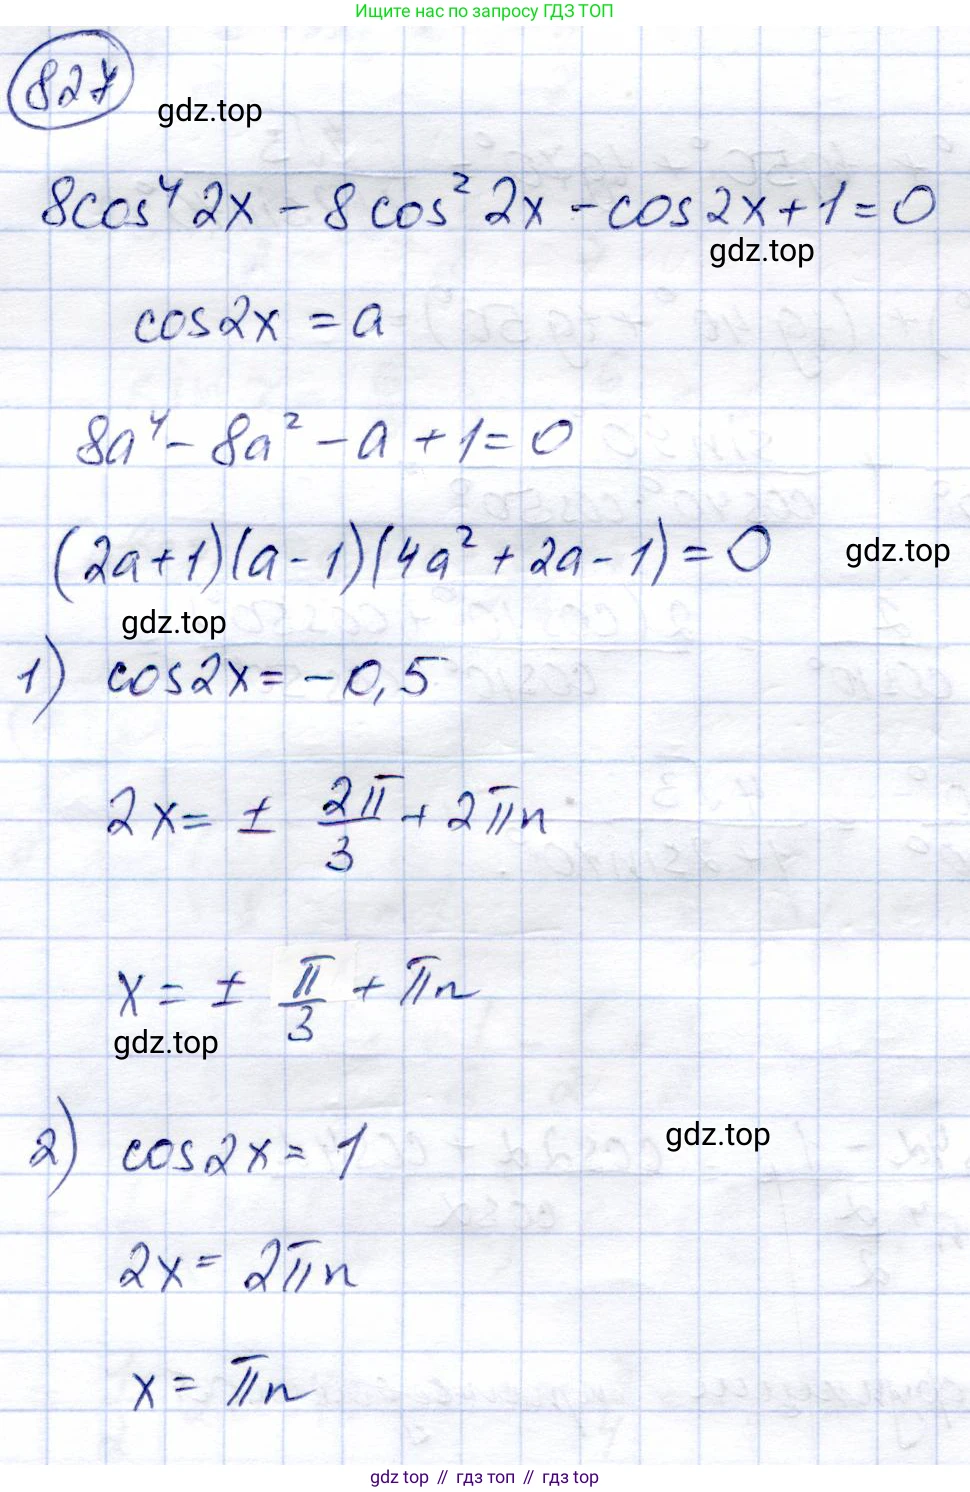 Ищите нас по запросу ГДЗ ТОП
827
gdz.top
8cos⁴ 2x - 8 cos² 2x - cos 2x + 1 = 0
gdz.top
cos2x = a
8a⁴ - 8a² - a + 1 = 0
(2a+1)(a-1)(4a² + 2a - 1) = 0
gdz.top
gdz.top
1) cos2x = -0,5
2x = ± 2π/3 + 2πn
x = ± π/3 + πn
gdz.top
gdz.top
2) cos2x = 1
2x = 2πn
x = πn
gdz top // гдз топ // gdz top